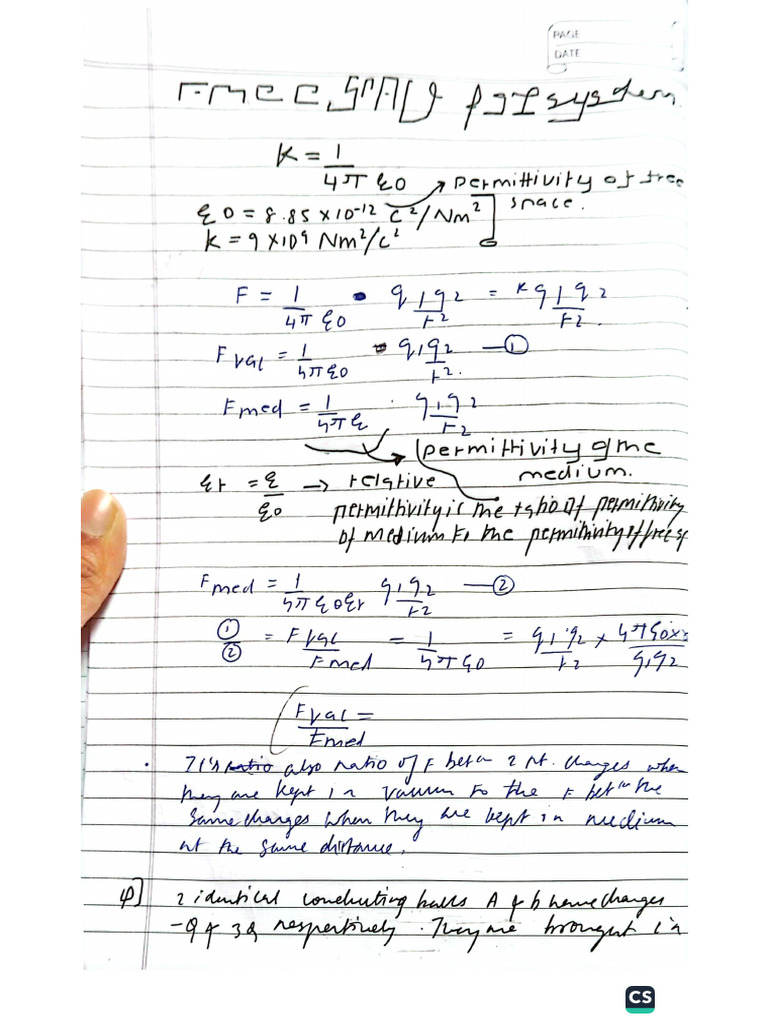 PAGE
DATE
FREE SPACE fSI system
K = 1/4π ε0 → permittivity of free
space.
ε0 = 8.85 × 10-12 C²/Nm²
K = 9 × 10⁹ Nm²/C²
F = 1/4π ε0 · q1q2/r² = K q1q2/r².
Fvac = 1/4πε0 · q1q2/r². — ①
Fmed = 1/4πε · q1q2/r²
permittivity of the
medium.
εr = ε/ε0 → relative
permittivity is the ratio of permittivity
of medium to the permittivity of free sp
Fmed = 1/4πε0εr q1q2/r² — ②
①/② = Fvac/Fmed = 1/4πε0 = q1q2/r² × 4πε0×/q1q2
Fvac/Fmed =
· ratio also ratio of F betn 2 pt. charges when
they are kept in vacuum to the F betn the
same charges when they are kept in medium
at the same distance.
φ] 2 identical conducting balls A & b have charges
-Q & 3Q respectively. They are brought in